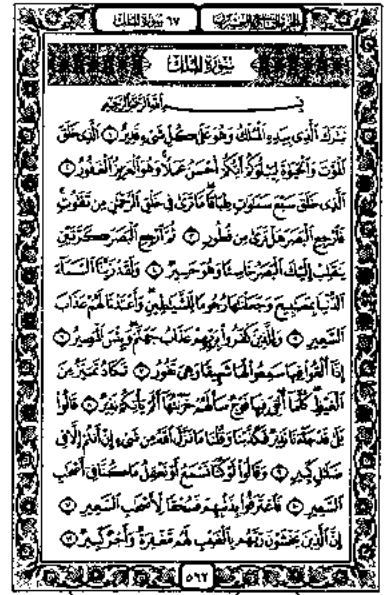 الجزء التاسع والعشرون
٦٧ سورة الملك
سُورَةُ المُلْكِ
بِسْمِ اللَّهِ الرَّحْمَٰنِ الرَّحِيمِ
تَبَٰرَكَ الَّذِي بِيَدِهِ الْمُلْكُ وَهُوَ عَلَىٰ كُلِّ شَيْءٍ قَدِيرٌ ١ الَّذِي خَلَقَ
الْمَوْتَ وَالْحَيَوٰةَ لِيَبْلُوَكُمْ أَيُّكُمْ أَحْسَنُ عَمَلًا وَهُوَ الْعَزِيزُ الْغَفُورُ ٢
الَّذِي خَلَقَ سَبْعَ سَمَٰوَٰتٍ طِبَاقًا مَّا تَرَىٰ فِي خَلْقِ الرَّحْمَٰنِ مِن تَفَٰوُتٍ
فَارْجِعِ الْبَصَرَ هَلْ تَرَىٰ مِن فُطُورٍ ٣ ثُمَّ ارْجِعِ الْبَصَرَ كَرَّتَيْنِ
يَنقَلِبْ إِلَيْكَ الْبَصَرُ خَاسِئًا وَهُوَ حَسِيرٌ ٤ وَلَقَدْ زَيَّنَّا السَّمَاءَ
الدُّنْيَا بِمَصَٰبِيحَ وَجَعَلْنَٰهَا رُجُومًا لِّلشَّيَٰطِينِ وَأَعْتَدْنَا لَهُمْ عَذَابَ
السَّعِيرِ ٥ وَلِلَّذِينَ كَفَرُوا بِرَبِّهِمْ عَذَابُ جَهَنَّمَ وَبِئْسَ الْمَصِيرُ ٦
إِذَا أُلْقُوا فِيهَا سَمِعُوا لَهَا شَهِيقًا وَهِيَ تَفُورُ ٧ تَكَادُ تَمَيَّزُ مِنَ
الْغَيْظِ كُلَّمَا أُلْقِيَ فِيهَا فَوْجٌ سَأَلَهُمْ خَزَنَتُهَا أَلَمْ يَأْتِكُمْ نَذِيرٌ ٨ قَالُوا
بَلَىٰ قَدْ جَاءَنَا نَذِيرٌ فَكَذَّبْنَا وَقُلْنَا مَا نَزَّلَ اللَّهُ مِن شَيْءٍ إِنْ أَنتُمْ إِلَّا فِي
ضَلَٰلٍ كَبِيرٍ ٩ وَقَالُوا لَوْ كُنَّا نَسْمَعُ أَوْ نَعْقِلُ مَا كُنَّا فِي أَصْحَٰبِ
السَّعِيرِ ١٠ فَاعْتَرَفُوا بِذَنبِهِمْ فَسُحْقًا لِّأَصْحَٰبِ السَّعِيرِ ١١
إِنَّ الَّذِينَ يَخْشَوْنَ رَبَّهُم بِالْغَيْبِ لَهُم مَّغْفِرَةٌ وَأَجْرٌ كَبِيرٌ ١٢
٥٦٢